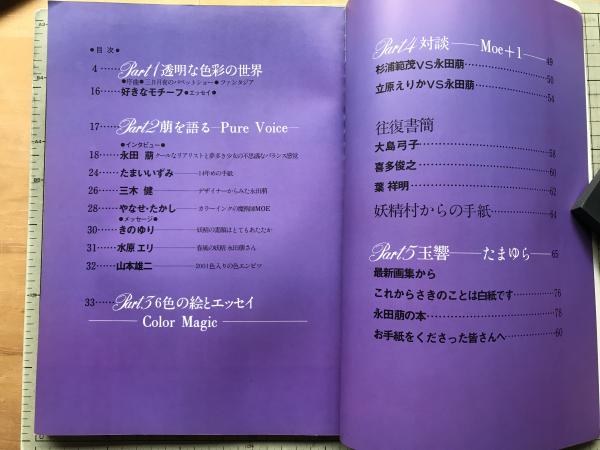 ●目次●
4……Part1透明な色彩の世界
●序曲●三日月夜のパペットショー●ファンタジア
16……好きなモチーフ●エッセイ●
17……Part2萠を語る—Pure Voice—
●インタビュー●
18……永田 萠 クールなリアリストと夢多き少女の不思議なバランス感覚
24……たまいいずみ——14年めの手紙
26……三木 健——デザイナーからみた永田萠
28……やなせ・たかし——カラーインクの魔術師MOE
●メッセージ●
30……きの ゆり——妖精の素顔はとてもあたたか
31……水原 エリ——春風の妖精 永田萠さん
32……山本雄二——2001色入りの色エンピツ
33……Part3 6色の絵とエッセイ
——Color Magic——
Part4 対談——Moe+1——49
杉浦範茂VS永田萠……50
立原えりかVS永田萠……54
往復書簡
大島弓子……58
喜多俊之……60
葉 祥明……62
妖精村からの手紙……64
Part5 玉響——たまゆら——65
最新画集から
これからさきのことは白紙です……76
永田萠の本……78
お手紙をくださった皆さんへ……80